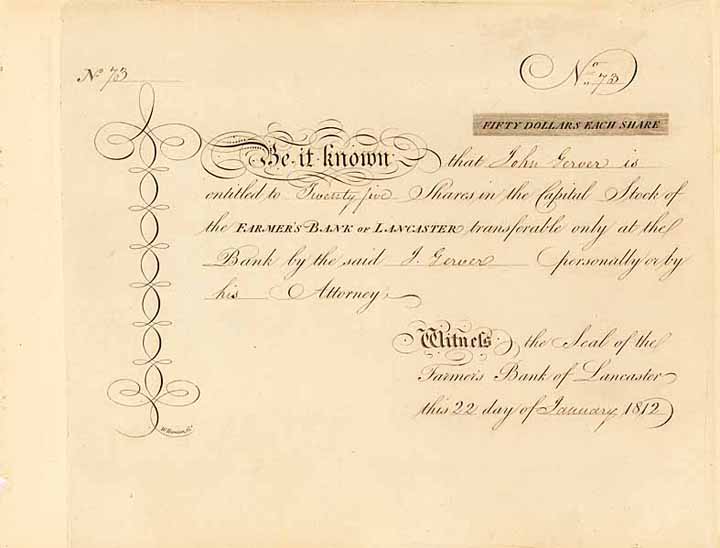 No 73
No 73
FIFTY DOLLARS EACH SHARE
Be it known that John Gerver is
entitled to Twenty five Shares in the Capital Stock of
the FARMER'S BANK OF LANCASTER transferable only at the
Bank by the said J. Gerver personally or by
his Attorney
Witness the Seal of the
Farmer's Bank of Lancaster
this 22 day of January 1812